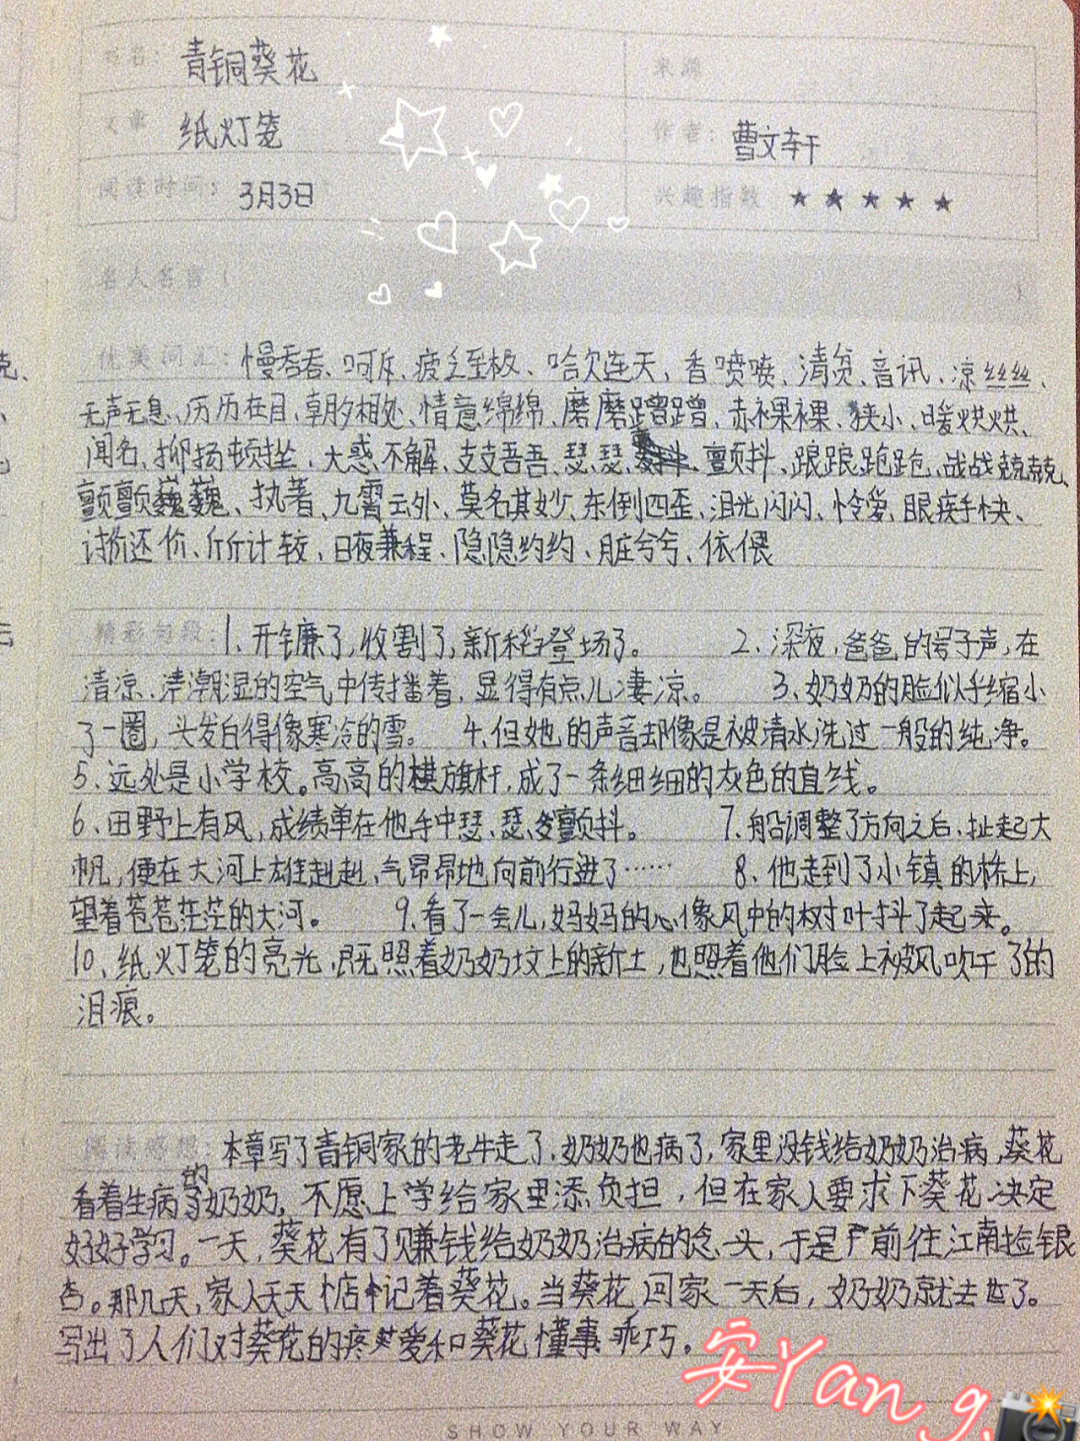 书名: 青铜葵花 来源
文章 纸灯笼 作者: 曹文轩
阅读时间: 3月3日 兴趣指数 ★★★★★
名人名言( )
优美词汇: 慢吞吞、呵斥、疲乏至极、哈欠连天、香喷喷、清贫、音讯、凉丝丝、
无声无息、历历在目、朝夕相处、情意绵绵、磨磨蹭蹭、赤裸裸、狭小、暖烘烘、
闻名、抑扬顿挫、大惑不解、支支吾吾、瑟瑟、颤抖、踉踉跄跄、战战兢兢、
颤颤巍巍、执著、九霄云外、莫名其妙、东倒西歪、泪光闪闪、怜爱、眼疾手快、
讨价还价、斤斤计较、日夜兼程、隐隐约约、脏兮兮、依偎
精彩句段: 1、开镰了,收割了,新稻登场了。 2、深夜,爸爸的号子声,在
清凉、潮湿的空气中传播着,显得有点儿凄凉。 3、奶奶的脸似乎缩小
了一圈,头发白得像寒冷的雪。 4、但她的声音却像是被清水洗过一般的纯净。
5、远处是小学校。高高的旗杆,成了一条细细的灰色的直线。
6、田野上有风,成绩单在他手中瑟、瑟颤抖。 7、船调整了方向之后,扯起大
帆,便在大河上雄赳赳、气昂昂地向前行进了…… 8、他走到了小镇的桥上,
望着苍苍茫茫的大河。 9、看了一会儿,妈妈的心像风中的树叶抖了起来。
10、纸灯笼的亮光,既照着奶奶坟上的新土,也照着他们脸上被风吹干了的
泪痕。
阅读感想: 本章写了青铜家的老牛走了,奶奶也病了,家里没钱给奶奶治病,葵花
看着生病的奶奶,不愿上学给家里添负担,但在家人要求下葵花决定
好好学习。一天,葵花有了赚钱给奶奶治病的念头,于是前往江南捡银
杏。那几天,家人天天惦记着葵花。当葵花回家一天后,奶奶就去世了。
写出了人们对葵花的疼爱和葵花懂事乖巧。
安Yang.
SHOW YOUR WAY